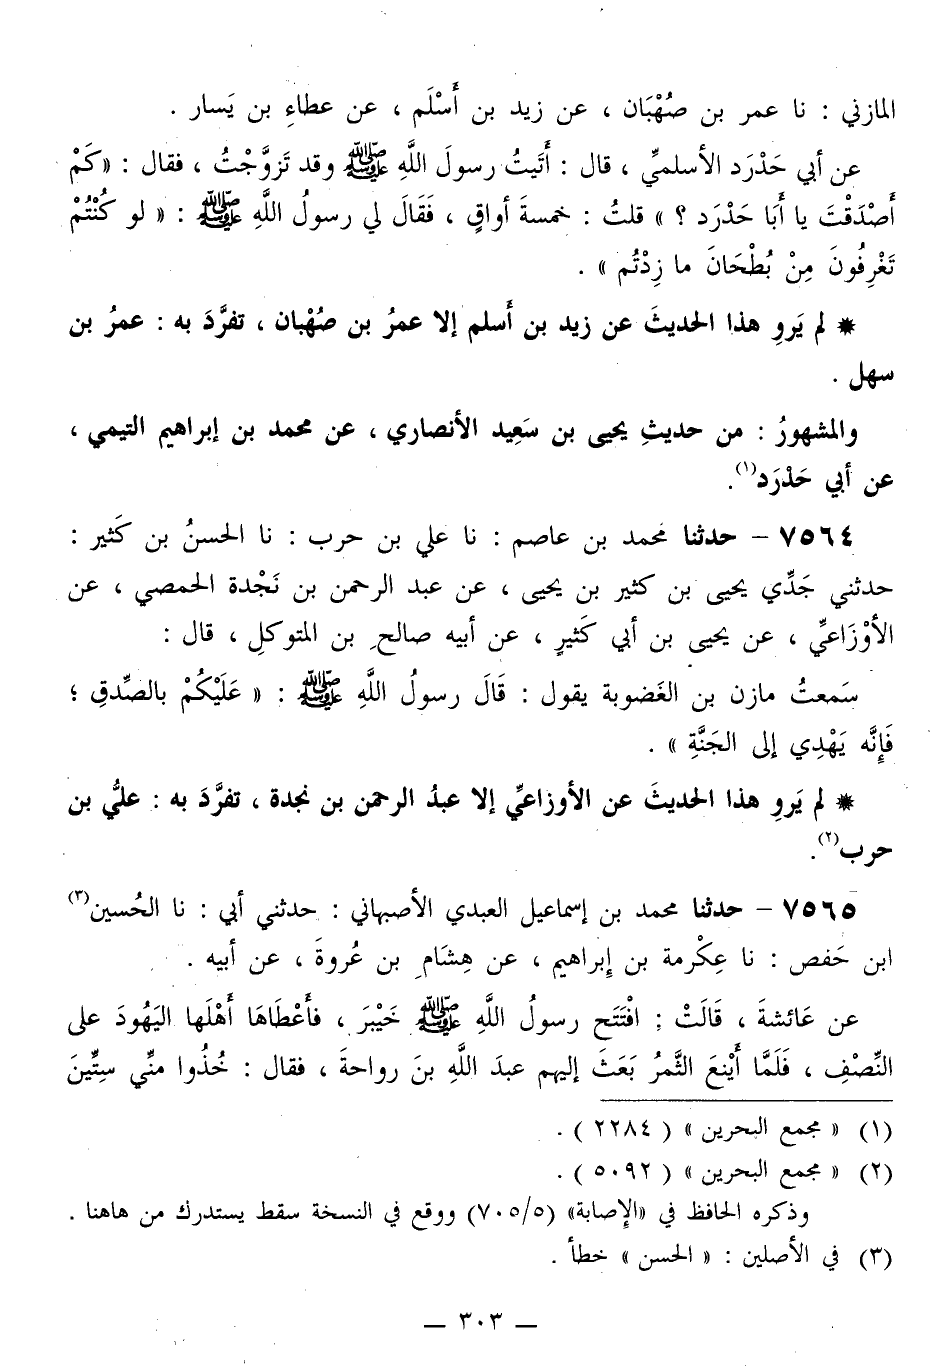 المازني : نا عمر بن صُهْبَان ، عن زيد بن أَسْلَم ، عن عطاءِ بن يَسار .
عن أبي حَدْرَد الأسلميِّ ، قال : أَتَيتُ رسولَ اللَّهِ ﷺ وقد تَزوَّجْتُ ، فقال : «كَمْ
أَصْدَقْتَ يا أَبَا حَدْرَد ؟ » قلتُ : خمسةَ أواقٍ ، فَقَالَ لي رسولُ اللَّهِ ﷺ : « لو كُنْتُمْ
تَغْرِفُونَ مِنْ بُطْحَانَ ما زِدْتُم » .
* لم يَروِ هذا الحديثَ عن زيد بن أَسلم إلا عمرُ بن صُهْبان ، تفرَّدَ به : عمرُ بن
سهل .
والمشهورُ : من حديثِ يحيى بن سَعِيد الأنصاري ، عن محمد بن إبراهيم التيمي ،
عن أبي حَدْرَد(١).
٧٥٦٤ – حدثنا محمد بن عاصم : نا علي بن حرب : نا الحسنُ بن كَثير :
حدثني جَدِّي يحيى بن كثير بن يحيى ، عن عبد الرحمن بن نَجْدة الحمصي ، عن
الأوْزَاعيِّ ، عن يحيى بن أبي كَثيرٍ ، عن أبيه صالحِ بن المتوكلِ ، قال :
سَمعتُ مازن بن الغَضوبة يقول : قَالَ رسولُ اللَّهِ ﷺ : « عَلَيْكُمْ بالصِّدقِ ؛
فَإِنَّه يَهْدِي إلى الجَنَّةِ » .
* لم يَروِ هذا الحديثَ عن الأوزاعيِّ إلا عبدُ الرحمن بن نجدة ، تفرَّدَ به : عليُّ بن
حرب(٢).
٧٥٦٥ – حدثنا محمد بن إسماعيل العبدي الأصبهاني : حدثني أبي : نا الحُسين(٣)
ابن حَفص : نا عِكْرمة بن إِبراهيم ، عن هِشَامِ بن عُروةَ ، عن أبيه .
عن عَائشةَ ، قَالَتْ : افْتَتَح رسولُ اللَّهِ ﷺ خَيْبرَ ، فأَعْطَاهَا أَهْلَها اليَهُودَ على
النِّصْفِ ، فَلَمَّا أَيْنَعَ الثَّمرُ بَعَثَ إليهم عبدَ اللَّهِ بنَ رواحةَ ، فقال : خُذُوا منِّي سِتِّينَ
(١) « مجمع البحرين » ( ٢٢٨٤ ) .
(٢) « مجمع البحرين » ( ٥٠٩٢ ) .
وذكره الحافظ في «الإصابة» (٧٠٥/٥) ووقع في النسخة سقط يستدرك من هاهنا .
(٣) في الأصلين : « الحسن » خطأ .
— ٣٠٣ —